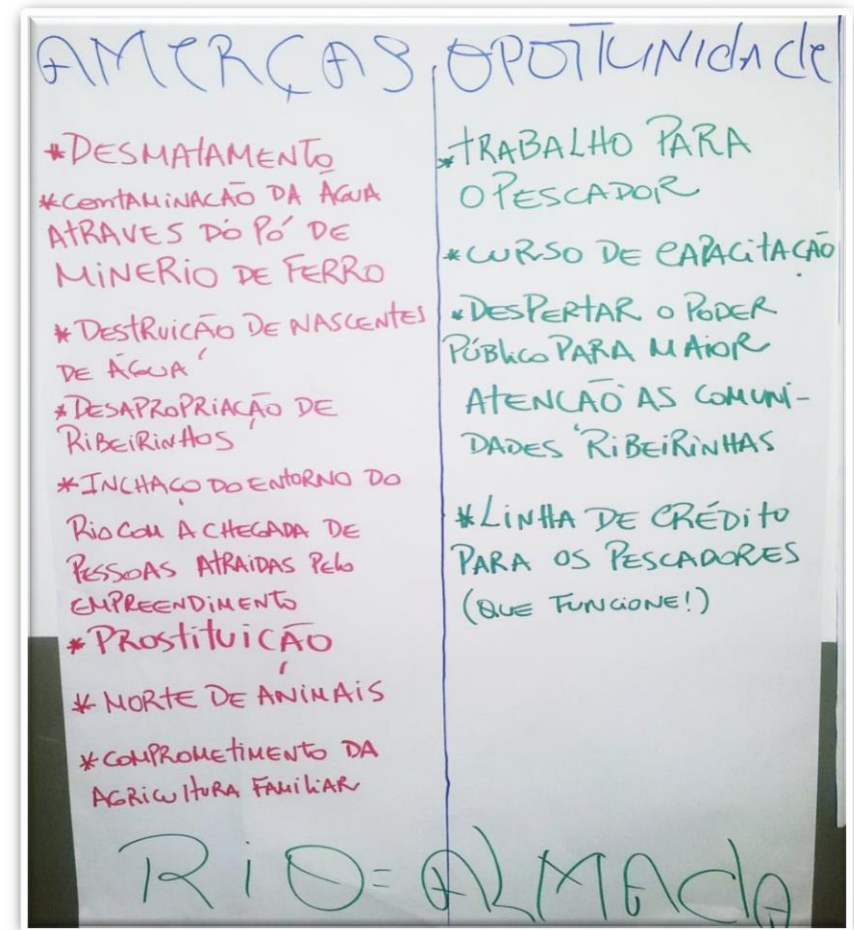 AMERÇAS
*DESMATAMENTO
*CONTAMINAÇÃO DA ÁGUA
ATRAVES DO PÓ DE
MINERIO DE FERRO
*DESTRUIÇÃO DE NASCENTES
DE ÁGUA
*DESAPROPRIAÇÃO DE
RIBEIRINHOS
*INCHAÇO DO ENTORNO DO
RIO COM A CHEGADA DE
PESSOAS ATRAIDAS PELO
EMPREENDIMENTO
*PROSTITUIÇÃO
*MORTE DE ANIMAIS
*COMPROMETIMENTO DA
AGRICULTURA FAMILIAR
OPOTTUNIdAde
*TRABALHO PARA
O PESCADOR
*CURSO DE CAPACITAÇÃO
*DESPERTAR O PODER
PÚBLICO PARA MAIOR
ATENCÃO AS COMUNI-
DADES RIBEIRINHAS
*LINHA DE CRÉDITO
PARA OS PESCADORES
(QUE FUNCIONE!)
RiO=ALMADA